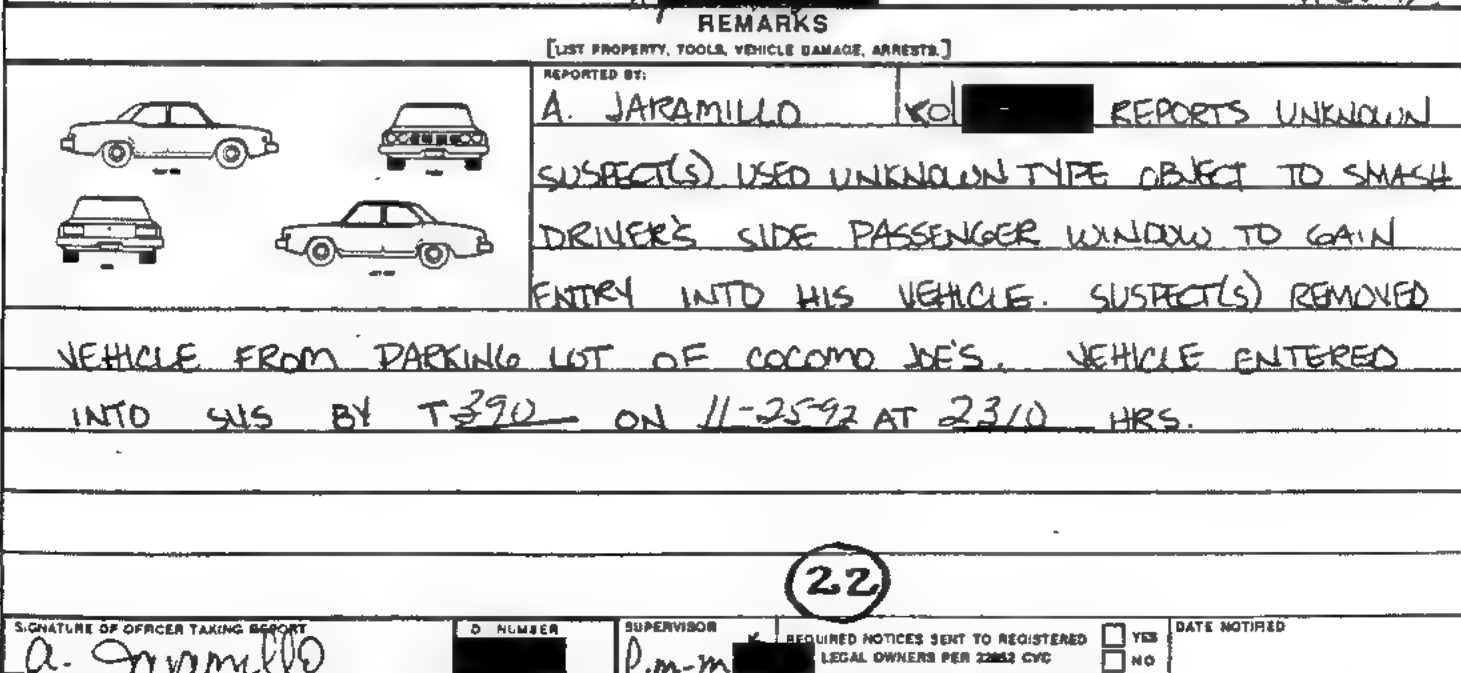 REMARKS
[LIST PROPERTY, TOOLS, VEHICLE DAMAGE, ARRESTS.]
REPORTED BY:
A. JARAMILLO REPORTS UNKNOWN
SUSPECT(S) USED UNKNOWN TYPE OBJECT TO SMASH
DRIVER'S SIDE PASSENGER WINDOW TO GAIN
ENTRY INTO HIS VEHICLE. SUSPECT(S) REMOVED
VEHICLE FROM PARKING LOT OF COCOMO JOE'S. VEHICLE ENTERED
INTO SVS BY T390 ON 11-25-92 AT 2310 HRS.
22
SIGNATURE OF OFFICER TAKING REPORT
A. Jaramillo
D NUMBER
SUPERVISOR
REQUIRED NOTICES SENT TO REGISTERED
LEGAL OWNERS PER 22852 CVC
YES
NO
DATE NOTIFIED